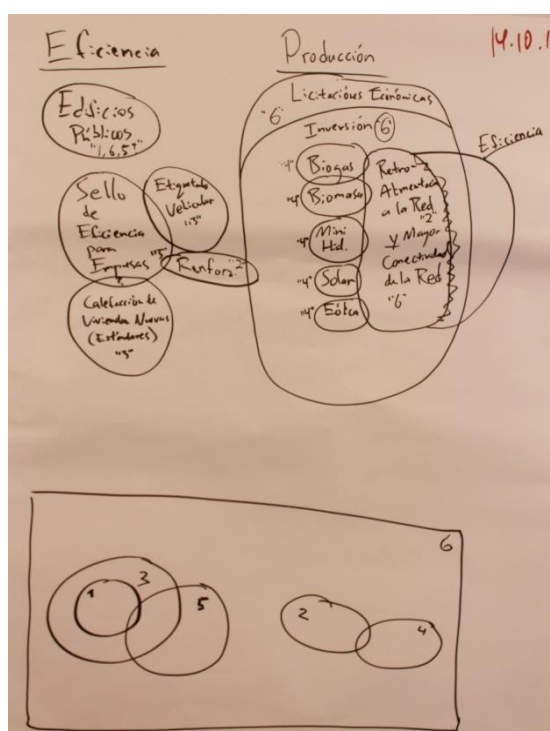 Eficiencia
Edificios
Públicos
"1,6,5?"
Sello
de
Eficiencia
para
Empresas "5"
Etiquetado
Vehicular
"3"
Calefacción de
Viviendas Nuevas
(Estándares)
"3"
Producción
14.10.1
Licitacións Económicas
"6"
Inversión "6"
"4" Biogas
"4" Biomasa
"4" Mini
Hid.
"4" Solar
"4" Eólica
Retro-
Alimentada
a la Red
"2"
y Mayor
Conectividad
de la Red
"6"
Eficiencia
6
1
3
5
2
4